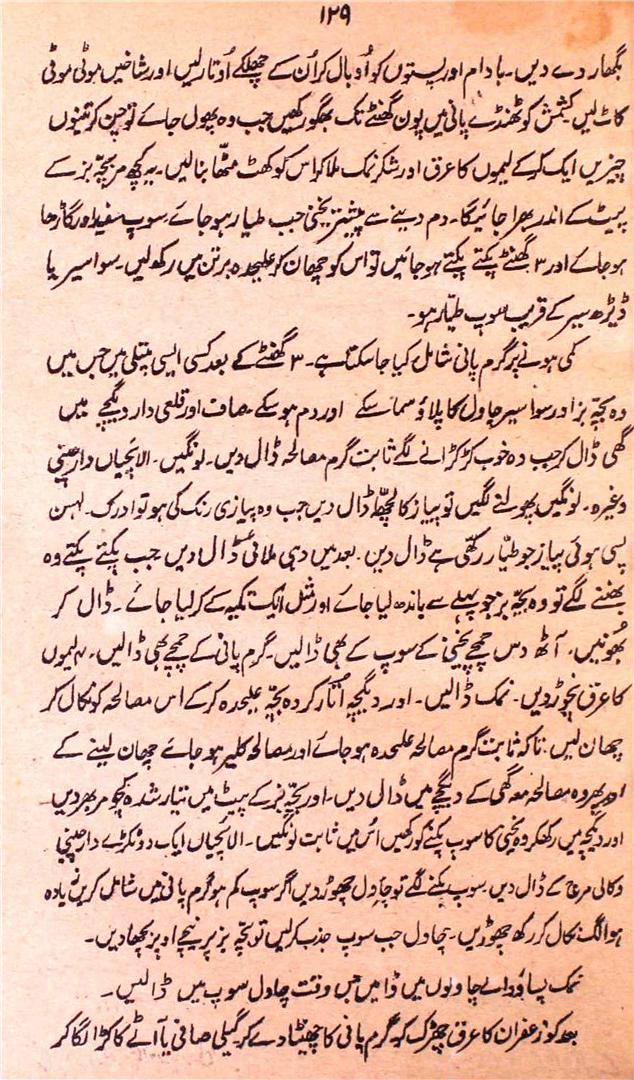 ۱۲۹
بگھار دے دیں۔ بادام اور پستوں کو اُوبال کر اُن کے چھلکے اُوتار لیں اور شاخیں موٹی موٹی
کاٹ لیں کشمش کو ٹھنڈے پانی میں پون گھنٹے تک بھگو رکھیں جب وہ پھول جائے تو چن کر تینوں
چیزیں ایک کر کے لیموں کا عرق اور شکر نمک ملا کر اس کو کھٹ مٹھا بنا لیں۔ یہ کچھ مر بچّہ بز کے
پیٹ کے اندر بھرا جائیگا۔ دم دینے سے پیشتر یخنی جب طیار ہو جائے سوپ سفید اور گاڑھا
ہو جائے اور ۳ گھنٹے پکتے پکتے ہو جائیں تو اس کو چھان کر علیحدہ برتن میں رکھ لیں۔ سوا سیر یا
ڈیڑھ سیر کے قریب سوپ طیّار ہو۔
کمی ہونے پر گرم پانی شامل کیا جا سکتا ہے۔ ۳ گھنٹے کے بعد کسی ایسی پتیلی میں جس میں
وہ بچّہ بز اور سوا سیر چاول کا پلاؤ سما سکے اور دم ہو سکے صاف اور قلعی دار دیگچے میں
گھی ڈال کر جب وہ خوب کڑکڑانے لگے ثابت گرم مصالحہ ڈال دیں۔ لونگیں۔ الائچیاں دارچینی
وغیرہ۔ لونگیں پھولنے لگیں تو پیاز کا لچھّا ڈال دیں جب وہ پیازی رنگ کی ہو تو ادرک۔ لہسن
پسی ہوئی پیاز جو طیّار رکھی ہے ڈال دین۔ بعد میں دہی ملائی ڈال دیں جب پکتے پکتے وہ
بھننے لگے تو وہ بچّہ بز جو پہلے سے باندھ لیا جائے اور مثل ایک تکیہ کے کر لیا جائے۔ ڈال کر
بھُونیں۔ آٹھ دس چمچے یخنی کے سوپ کے بھی ڈالیں۔ گرم پانی کے چمچے بھی ڈالیں۔ لیموں
کا عرق نچوڑ دیں۔ نمک ڈالیں۔ اور دیگچہ اُتار کر وہ بچّہ علیحدہ کر کے اس مصالحہ کو نکال کر
چھان لیں۔ تاکہ ثابت گرم مصالحہ علیحدہ ہو جائے اور مصالحہ کلیر ہو جائے چھان لینے کے
اور پھر وہ مصالحہ معہ گھی کے دیگچے میں ڈال دیں۔ اور بچّہ بز کے پیٹ میں تیار شدہ کچومر بھر دیں۔
اور دیگچہ میں رکھ کر وہ یخنی کا سوپ پکنے کو رکھیں اُس میں ثابت لونگیں۔ الائچیاں ایک دو ٹکڑے دارچینی
و کالی مرچ کے ڈال دیں۔ سوپ پکنے لگے تو چاول چھوڑ دیں اگر سوپ کم ہو گرم پانی میں شامل کریں زیادہ
ہو الگ نکال کر رکھ چھوڑیں۔ چاول جب سوپ جذب کر لیں تو بچّہ بز پر نیچے اوپر بچھا دیں۔
نمک چاولوں میں ڈالیں جس وقت چاول سوپ میں ڈالیں۔
بعد کو زعفران کا عرق چھڑک کر گرم پانی کا چھینٹا دے کر گیلی صافی یا آٹے کا کڑا لگا کر